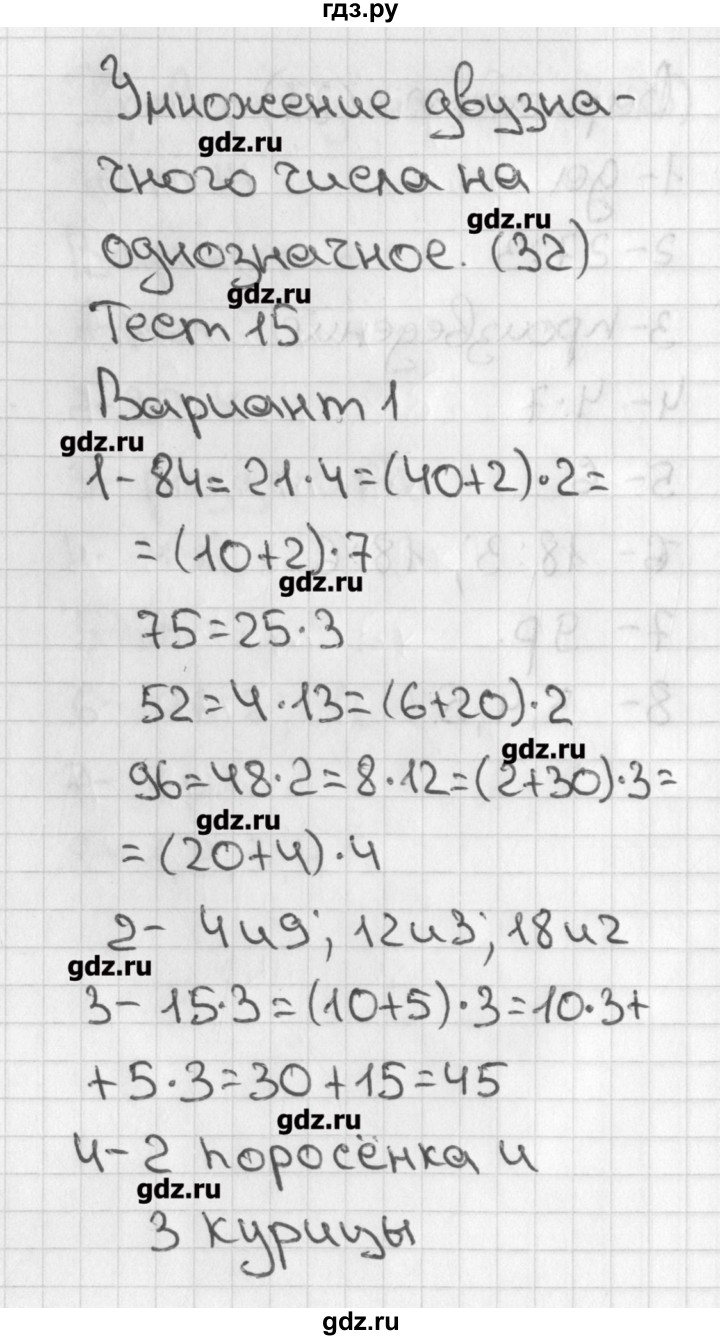 гдз.ру
Умножение двузна-
gdz.ru
чного числа на
gdz.ru
однозначное. (32)
gdz.ru
Тест 15
Вариант 1
gdz.ru
1- 84= 21·4=(40+2)·2=
=(10+2)·7
gdz.ru
75=25·3
52=4·13=(6+20)·2
gdz.ru
96=48·2=8·12=(2+30)·3=
gdz.ru
=(20+4)·4
2- 4и9; 12и3; 18и2
gdz.ru
3- 15·3=(10+5)·3=10·3+
+5·3=30+15=45
gdz.ru
4-2 поросёнка и
gdz.ru
3 курицы
gdz.ru